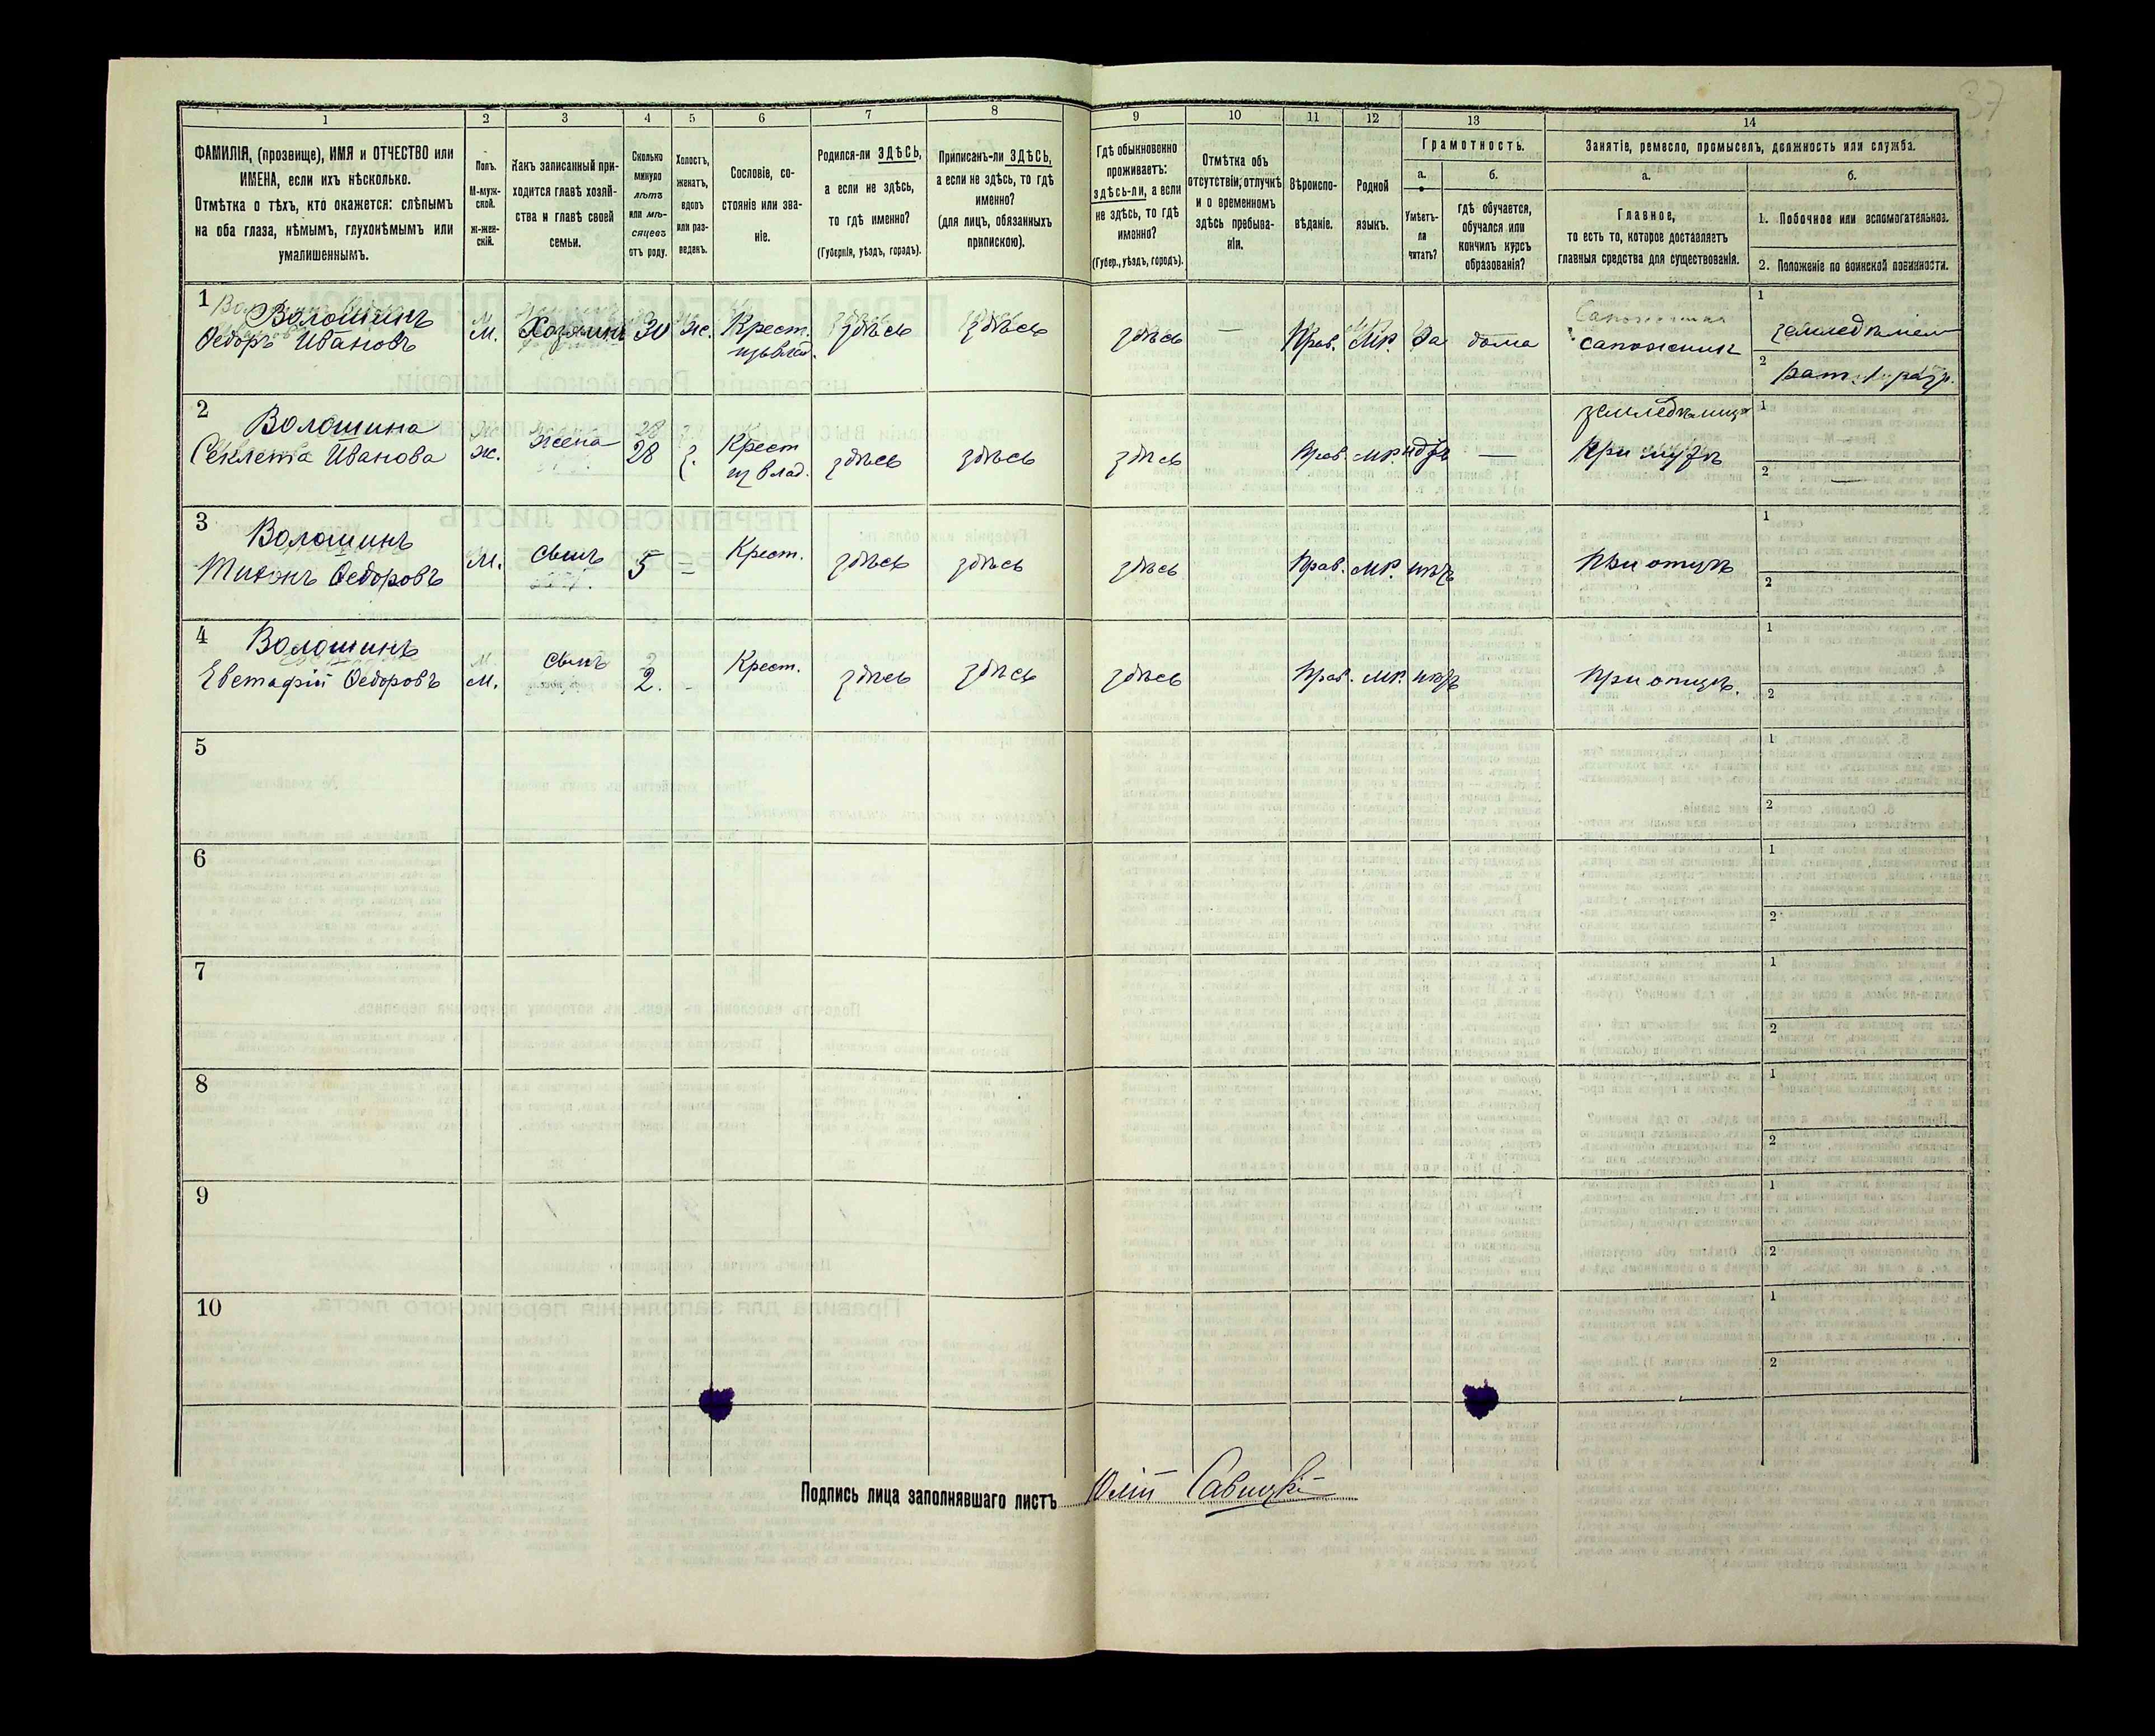 37
1 2 3 4 5 6 7 8 9 10 11 12 13 14
ФАМИЛІЯ, (прозвище), ИМЯ и ОТЧЕСТВО или
ИМЕНА, если ихъ нѣсколько.
Отмѣтка о тѣхъ, кто окажется: слѣпымъ
на оба глаза, нѣмымъ, глухонѣмымъ или
умалишеннымъ.
Полъ.
М-муж-
ской.
ж-жен-
скій.
Какъ записанный при-
ходится главѣ хозяй-
ства и главѣ своей
семьи.
Сколько
минуло
лѣтъ
или мѣ-
сяцевъ
отъ роду.
Холостъ,
женатъ,
вдовъ
или раз-
веденъ.
Сословіе, со-
стояніе или зва-
ніе.
Родился-ли ЗДѢСЬ,
а если не здѣсь,
то гдѣ именно?
(Губернія, уѣздъ, городъ).
Приписанъ-ли ЗДѢСЬ,
а если не здѣсь, то гдѣ
именно?
(для лицъ, обязанныхъ
припискою).
Гдѣ обыкновенно
проживаетъ:
здѣсь-ли, а если
не здѣсь, то гдѣ
именно?
(Губер., уѣздъ, городъ).
Отмѣтка объ
отсутствіи, отлучкѣ
и о временномъ
здѣсь пребыва-
ніи.
Вѣроиспо-
вѣданіе.
Родной
языкъ.
Грамотность.
а.
Умѣетъ-
ли
читать?
б.
гдѣ обучается,
обучался или
кончилъ курсъ
образованія?
Занятіе, ремесло, промыселъ, должность или служба.
а.
Главное,
то есть то, которое доставляетъ
главныя средства для существованія.
б.
1. Побочное или вспомогательное.
2. Положеніе по воинской повинности.
1 Волошинъ
Федоръ Ивановъ
М. Хозяинъ 30 ж. Крест.
изъ влад.
здѣсь здѣсь здѣсь — Прав. Мр. да дома сапожник
1 земледѣлiем
2 рат. 1 разр.
2 Волошина
Секлета Иванова
ж. жена 28 з. Крест
из влад.
здѣсь здѣсь здѣсь Прав. мр. нѣтъ —
при мужѣ
1
2 —
3 Волошинъ
Тихонъ Федоровъ
М. сынъ 5 = Крест. здѣсь здѣсь здѣсь Прав. мр. нѣтъ при отцѣ
1
2
4 Волошинъ
Евстафій Федоровъ
м. сынъ 2. - Крест. здѣсь здѣсь здѣсь Прав. мр. нѣтъ при отцѣ.
1
2
5 1
2
6 1
2
7 1
2
8 1
2
9 1
2
10 1
2
Подпись лица заполнявшаго листъ Юлій Савицкій